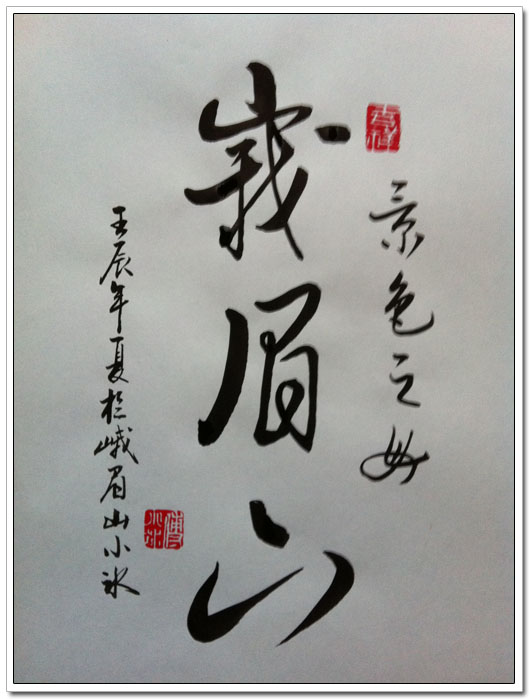 景色之母
峨眉山
壬辰年夏於峨眉山小冰